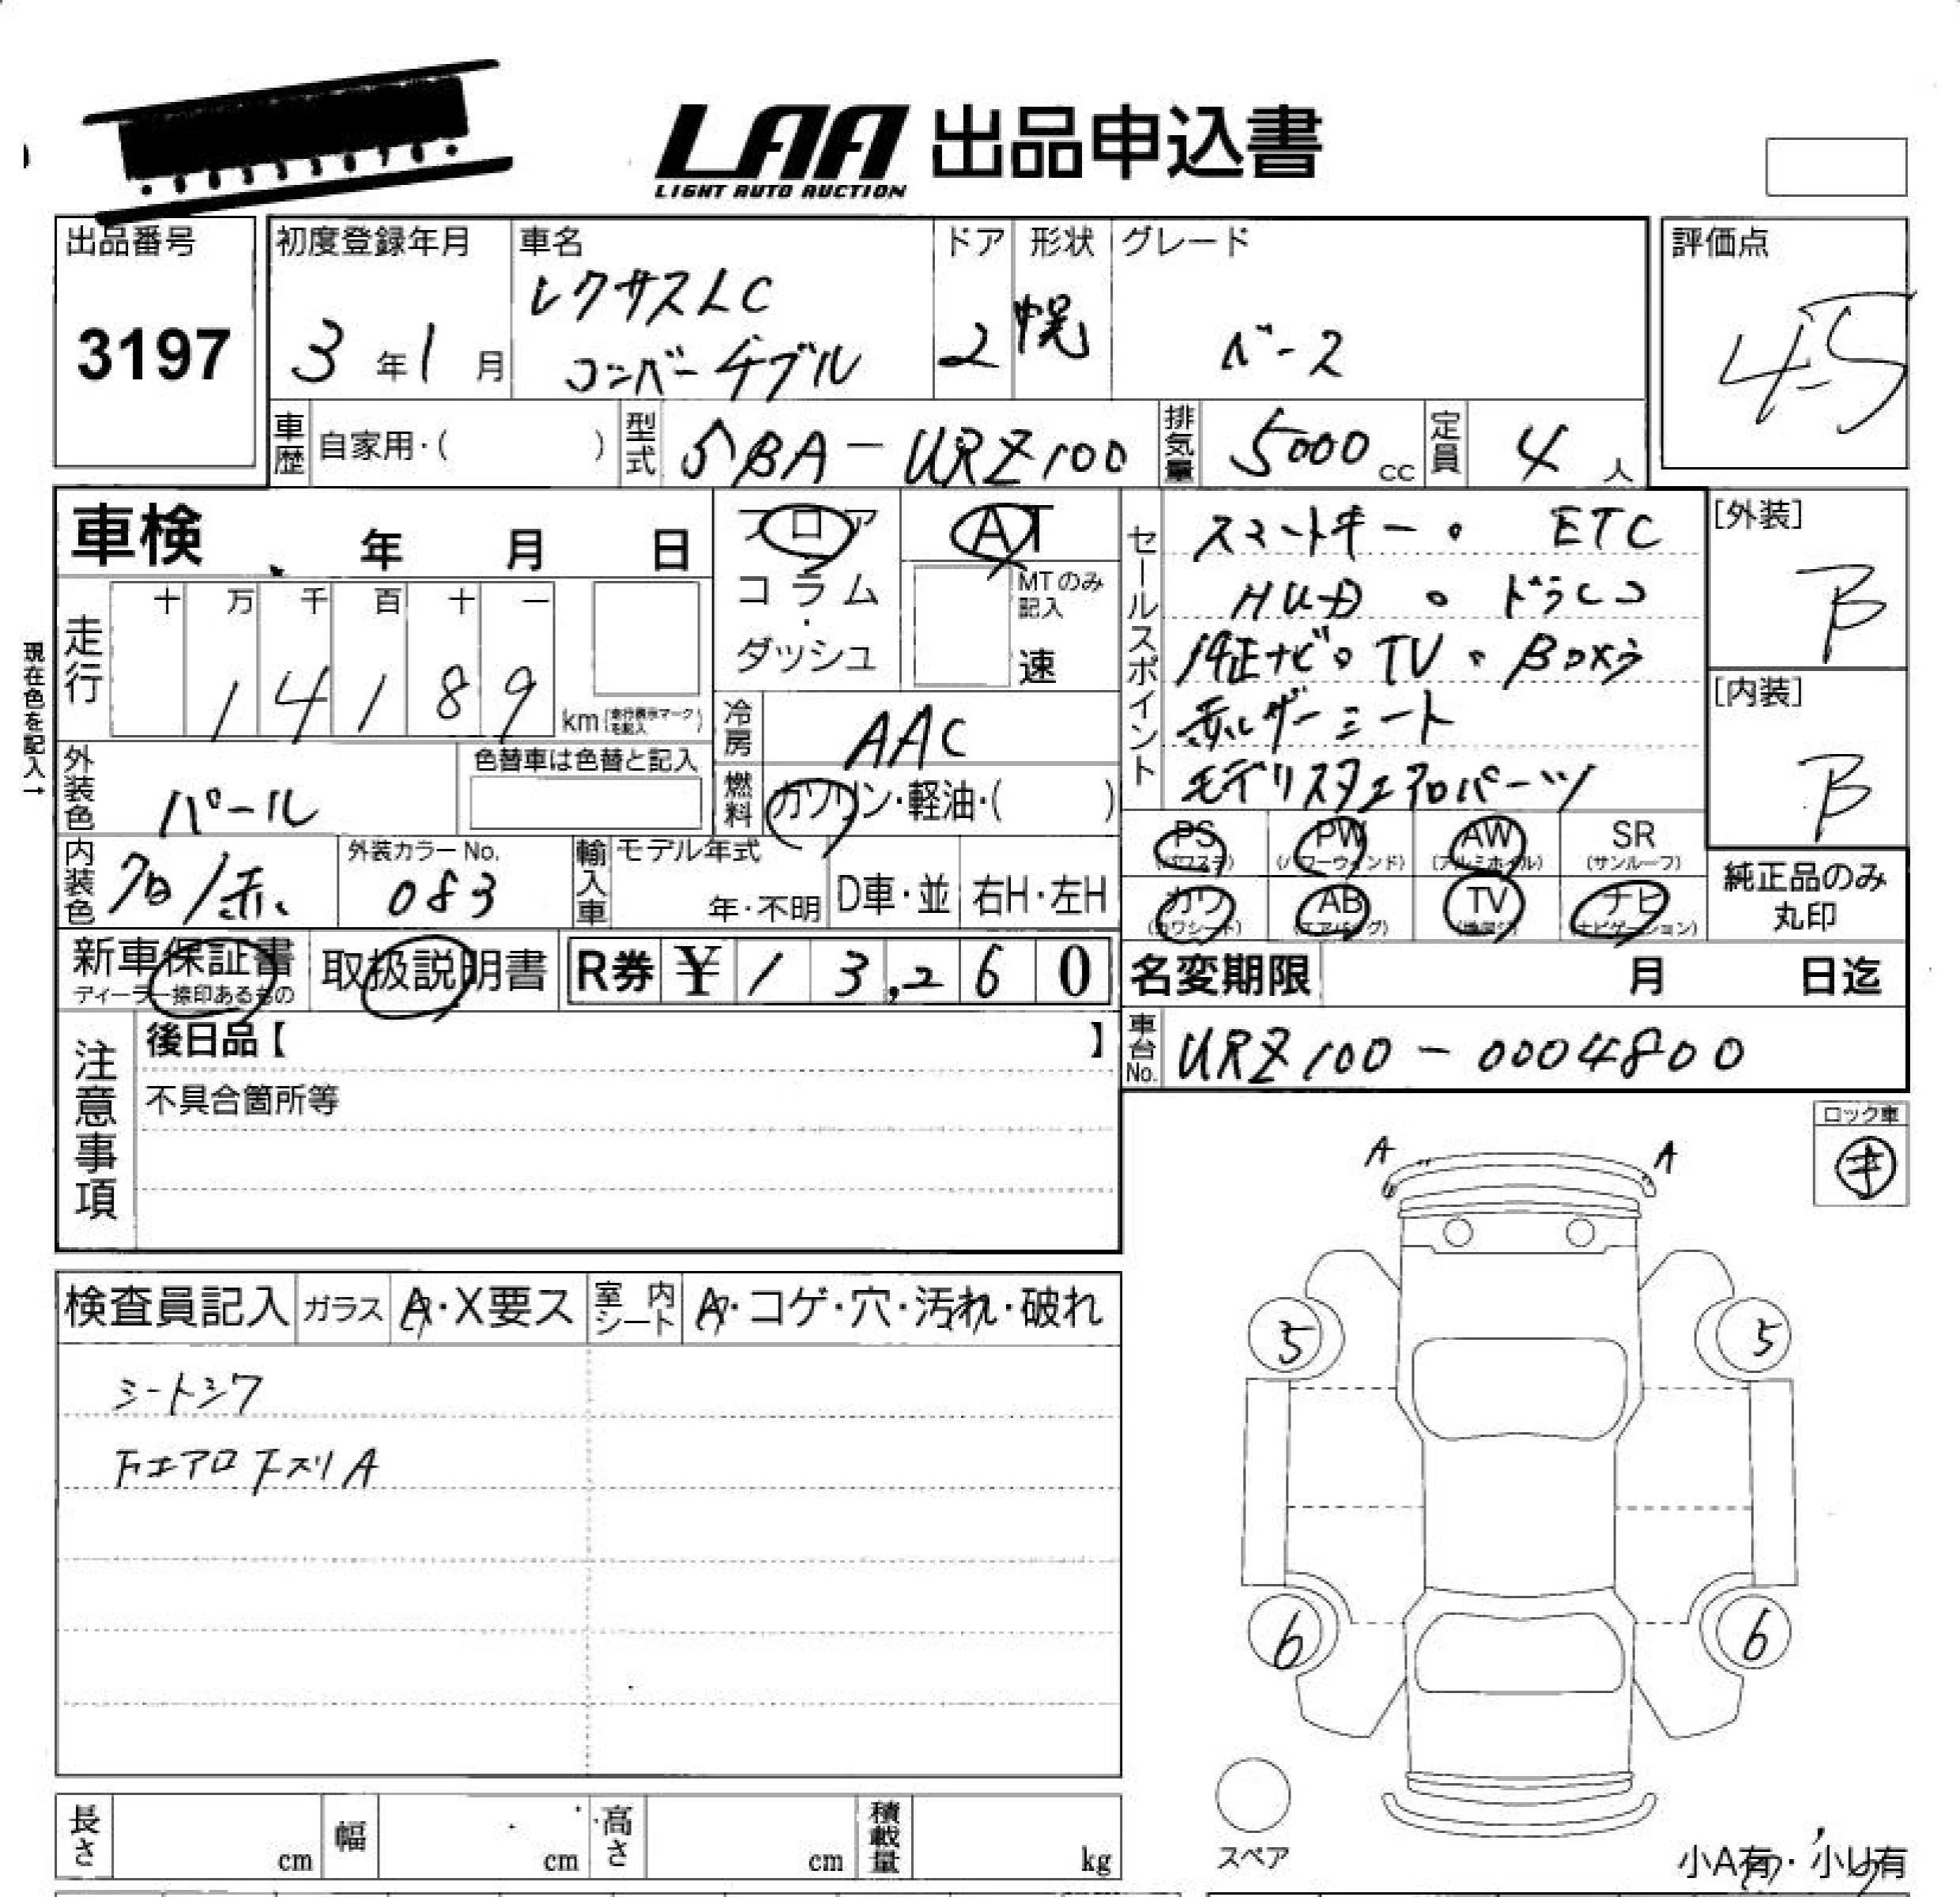 LAA 出品申込書
LIGHT AUTO AUCTION
出品番号
3197
初度登録年月
3年1月
車名
レクサスLC
コンバーチブル
ドア
2
形状
幌
グレード
ベース
評価点
4.5
車歴 自家用・( )
型式 5BA-URZ100
排気量 5000cc
定員 4人
車検 年 月 日
フロア・コラム・ダッシュ
AT
MTのみ記入
速
走行
十 万 千 百 十 一
14189 km
現在色を記入↑
冷房 AAC
燃料 ガソリン・軽油・( )
セールスポイント
スマートキー。 ETC
HUD 。 ドラレコ
純正ナビ。TV。Bカメラ
赤レザーシート
モデリスタエアロパーツ
[外装]
B
[内装]
B
外装色 パール
色替車は色替と記入
内装色 クロ/赤
外装カラーNo.
083
輸入車 モデル年式
年・不明
D車・並
右H・左H
PS
(パワステ)
PW
(パワーウィンド)
AW
(アルミホイル)
SR
(サンルーフ)
カワ
(カワシート)
AB
(エアバッグ)
TV
ナビ
(ナビゲーション)
純正品のみ
丸印
新車保証書
ディーラー捺印あるもの
取扱説明書
R券 ¥13,260
名変期限 月 日迄
車台No. URZ100-0004800
注意事項
後日品【 】
不具合箇所等
ロック車
キ
A A
5 5
6 6
検査員記入
ガラス A・X要ス
室内シート A・コゲ・穴・汚れ・破れ
シートシワ
下エアロ下スリA
長さ cm
幅 cm
高さ cm
積載量 kg
スペア
小A有・小U有